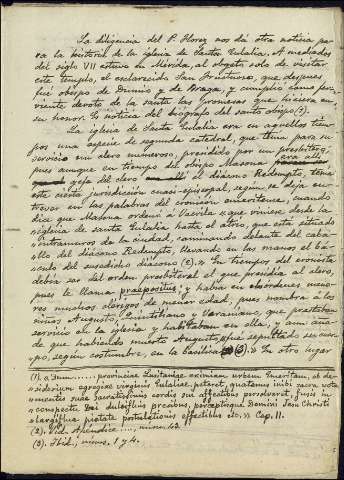 La diligencia del P. Florez nos da otra noticia pa-
ra la historia de la iglesia de Santa Eulalia. A mediados
del siglo VII estuvo en Mérida, al objeto solo de visitar
este templo, el esclarecido San Fructuoso, que despues
fué obispo de Dumio y de Braga, y cumplió como fer-
viente devoto de la santa las promesas que hiciera en
su honor. Es noticia del biografo del santo obispo (1).
La iglesia de Santa Eulalia era en aquellos tiem-
pos una especie de segunda catedral, que tenia para su
servicio un clero numeroso, presidido por un presbitero,
pues aunque en tiempo del obispo Masona era allí
gefe del clero el diácono Redempto, tenia
este cierta jurisdicción cuasi-episcopal, según se deja en-
trever en las palabras del cronista emeritense, cuando
dice que Masona ordenó á Vacrila "que viniese desde la
iglesia de santa Eulalia hasta el atrio, que está situado
extramuros de la ciudad, caminando delante del caba-
llo del diácono Redempto, llevando en las manos el bá-
culo del susodicho diácono (2)." En tiempos del cronista
debia ser del orden presbiteral el que presidia al clero,
pues le llama praepositus; y habia en ordenes meno-
res muchos clerigos de menor edad, pues nombra á los
niños Augusto, Quintiliano y Veraniano, que prestaban
servicio en la iglesia y habitaban en ella, y aun aña-
de que habiendo muerto Augusto, fué sepultado su cuer-
po, según costumbre, en la basilica (3)." En otro lugar
(1). a Dum..... provinciae Lusitaniae eximiam urbem Emeritam, ob de-
siderium egregiae virginis Eulaliae, peteret, quatenus inibi sacra vota
mentis suae sacratissimis cordis sui affectibus persolveret, fusis in
conspectu Dei dulcifluis precibus, perceptisque Domini Jesu Christi
largiflua pietate postulationis effectibus etc. » Cap. 11.
(2). Vid. Apéndice...., núm. 43.
(3). Ibid., núms. 1 y 4.